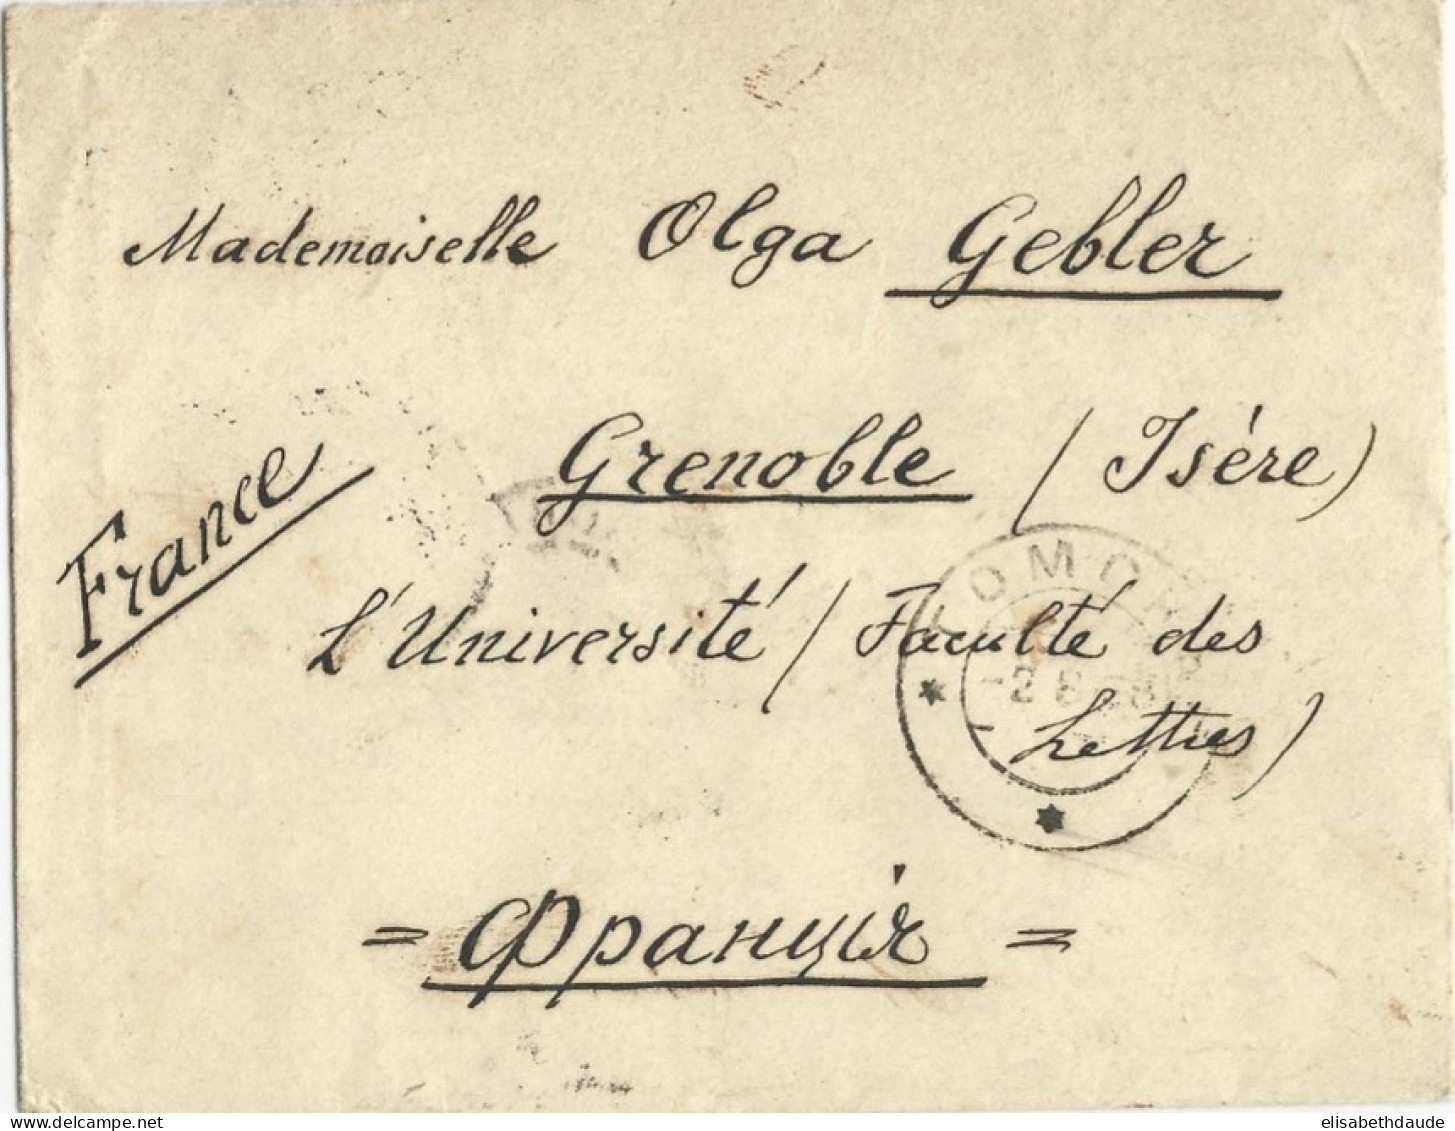 Mademoiselle Olga Gebler
Grenoble (Isére)
France
L'Université (Faculté des
- Lettres)
= Франція =
delcampe.net
elisabethdaude